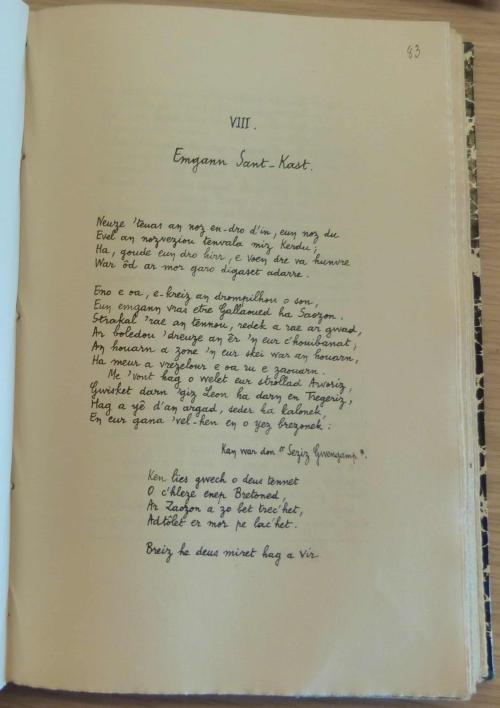 83
VIII.
Emgann Sant-Kast.
Neuze 'teuas an noz en-dro d'in, eun noz du
Evel an nozveziou tenvala miz Kerdu;
Ha, goude eun dro hirr, e voen dre va hunvre
War ôd ar mor garo digaset adarre.
Eno e oa, e-kreiz an drompilhou o son,
Eun emgann vras etre Gallaoued ha Saozon.
Strakal 'rae an tennou, redek a rae ar gwad,
Ar boledou 'dreuze an êr 'n eur c'houibanat;
An houarn a zone 'n eur skei war an houarn,
Ha meur a vrezelour e oa ru e zaouarn.
Me 'vont hag o welet eur strollad Arvoriz,
Gwisket darn 'giz Leon ha darn en Tregeriz,
Hag a yê d'an argad, seder ha kalonek,
En eur gana 'vel-hen en o yez brezonek:
Kan war don "Seziz Gwengamp".
Ken lies gwech o deus tennet
O c'hleze enep Bretoned,
Ar Zaozon a zo bet trec'het,
Adtôlet er mor pe lac'het.
Breiz he deus miret hag a vir